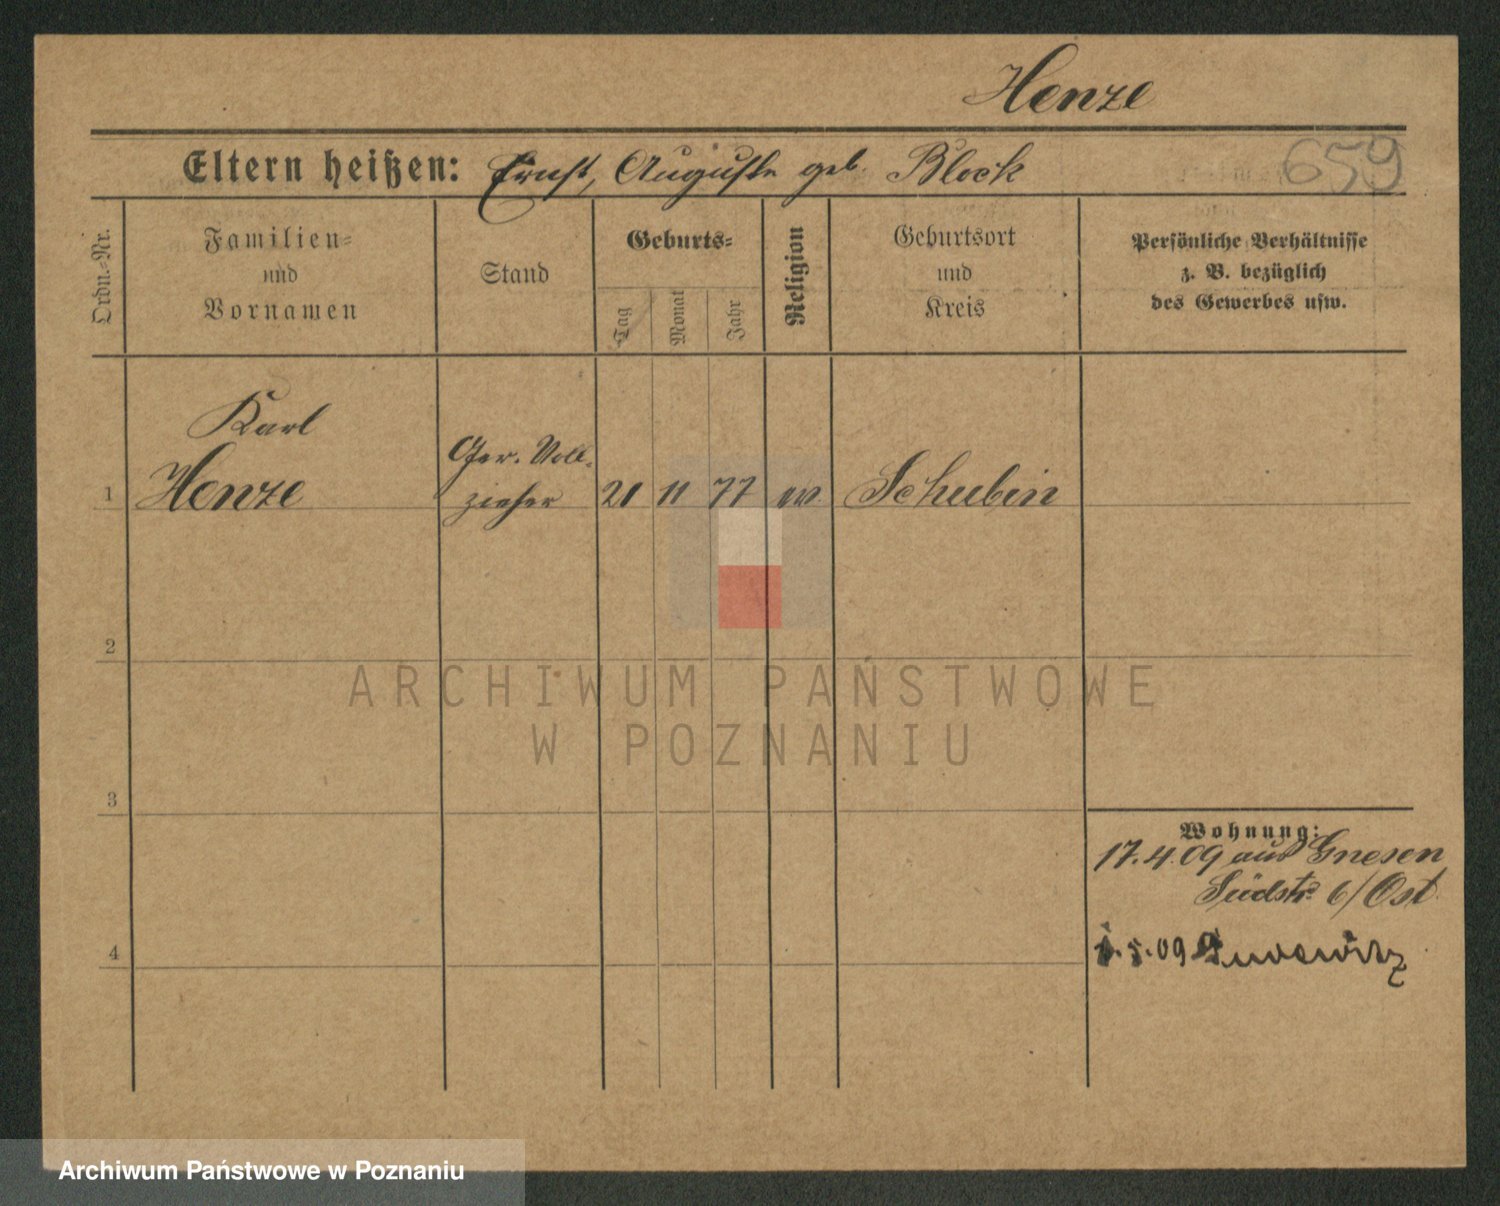 Henze
659
Eltern heißen: Ernst, Auguste geb. Block
Ordn.-Nr.
Familien-
und
Vornamen
Stand
Geburts-
Tag
Monat
Jahr
Religion
Geburtsort
und
Kreis
Persönliche Verhältnisse
z. B. bezüglich
des Gewerbes usw.
Karl
1 Henze
Ger. Voll-
zieher
21 11 77 ev. Schubin
2
3
4
Wohnung:
17.4.09 aus Gnesen
Südstr. 6/Ost
5.09
ARCHIWUM PAŃSTWOWE
W POZNANIU
Archiwum Państwowe w Poznaniu